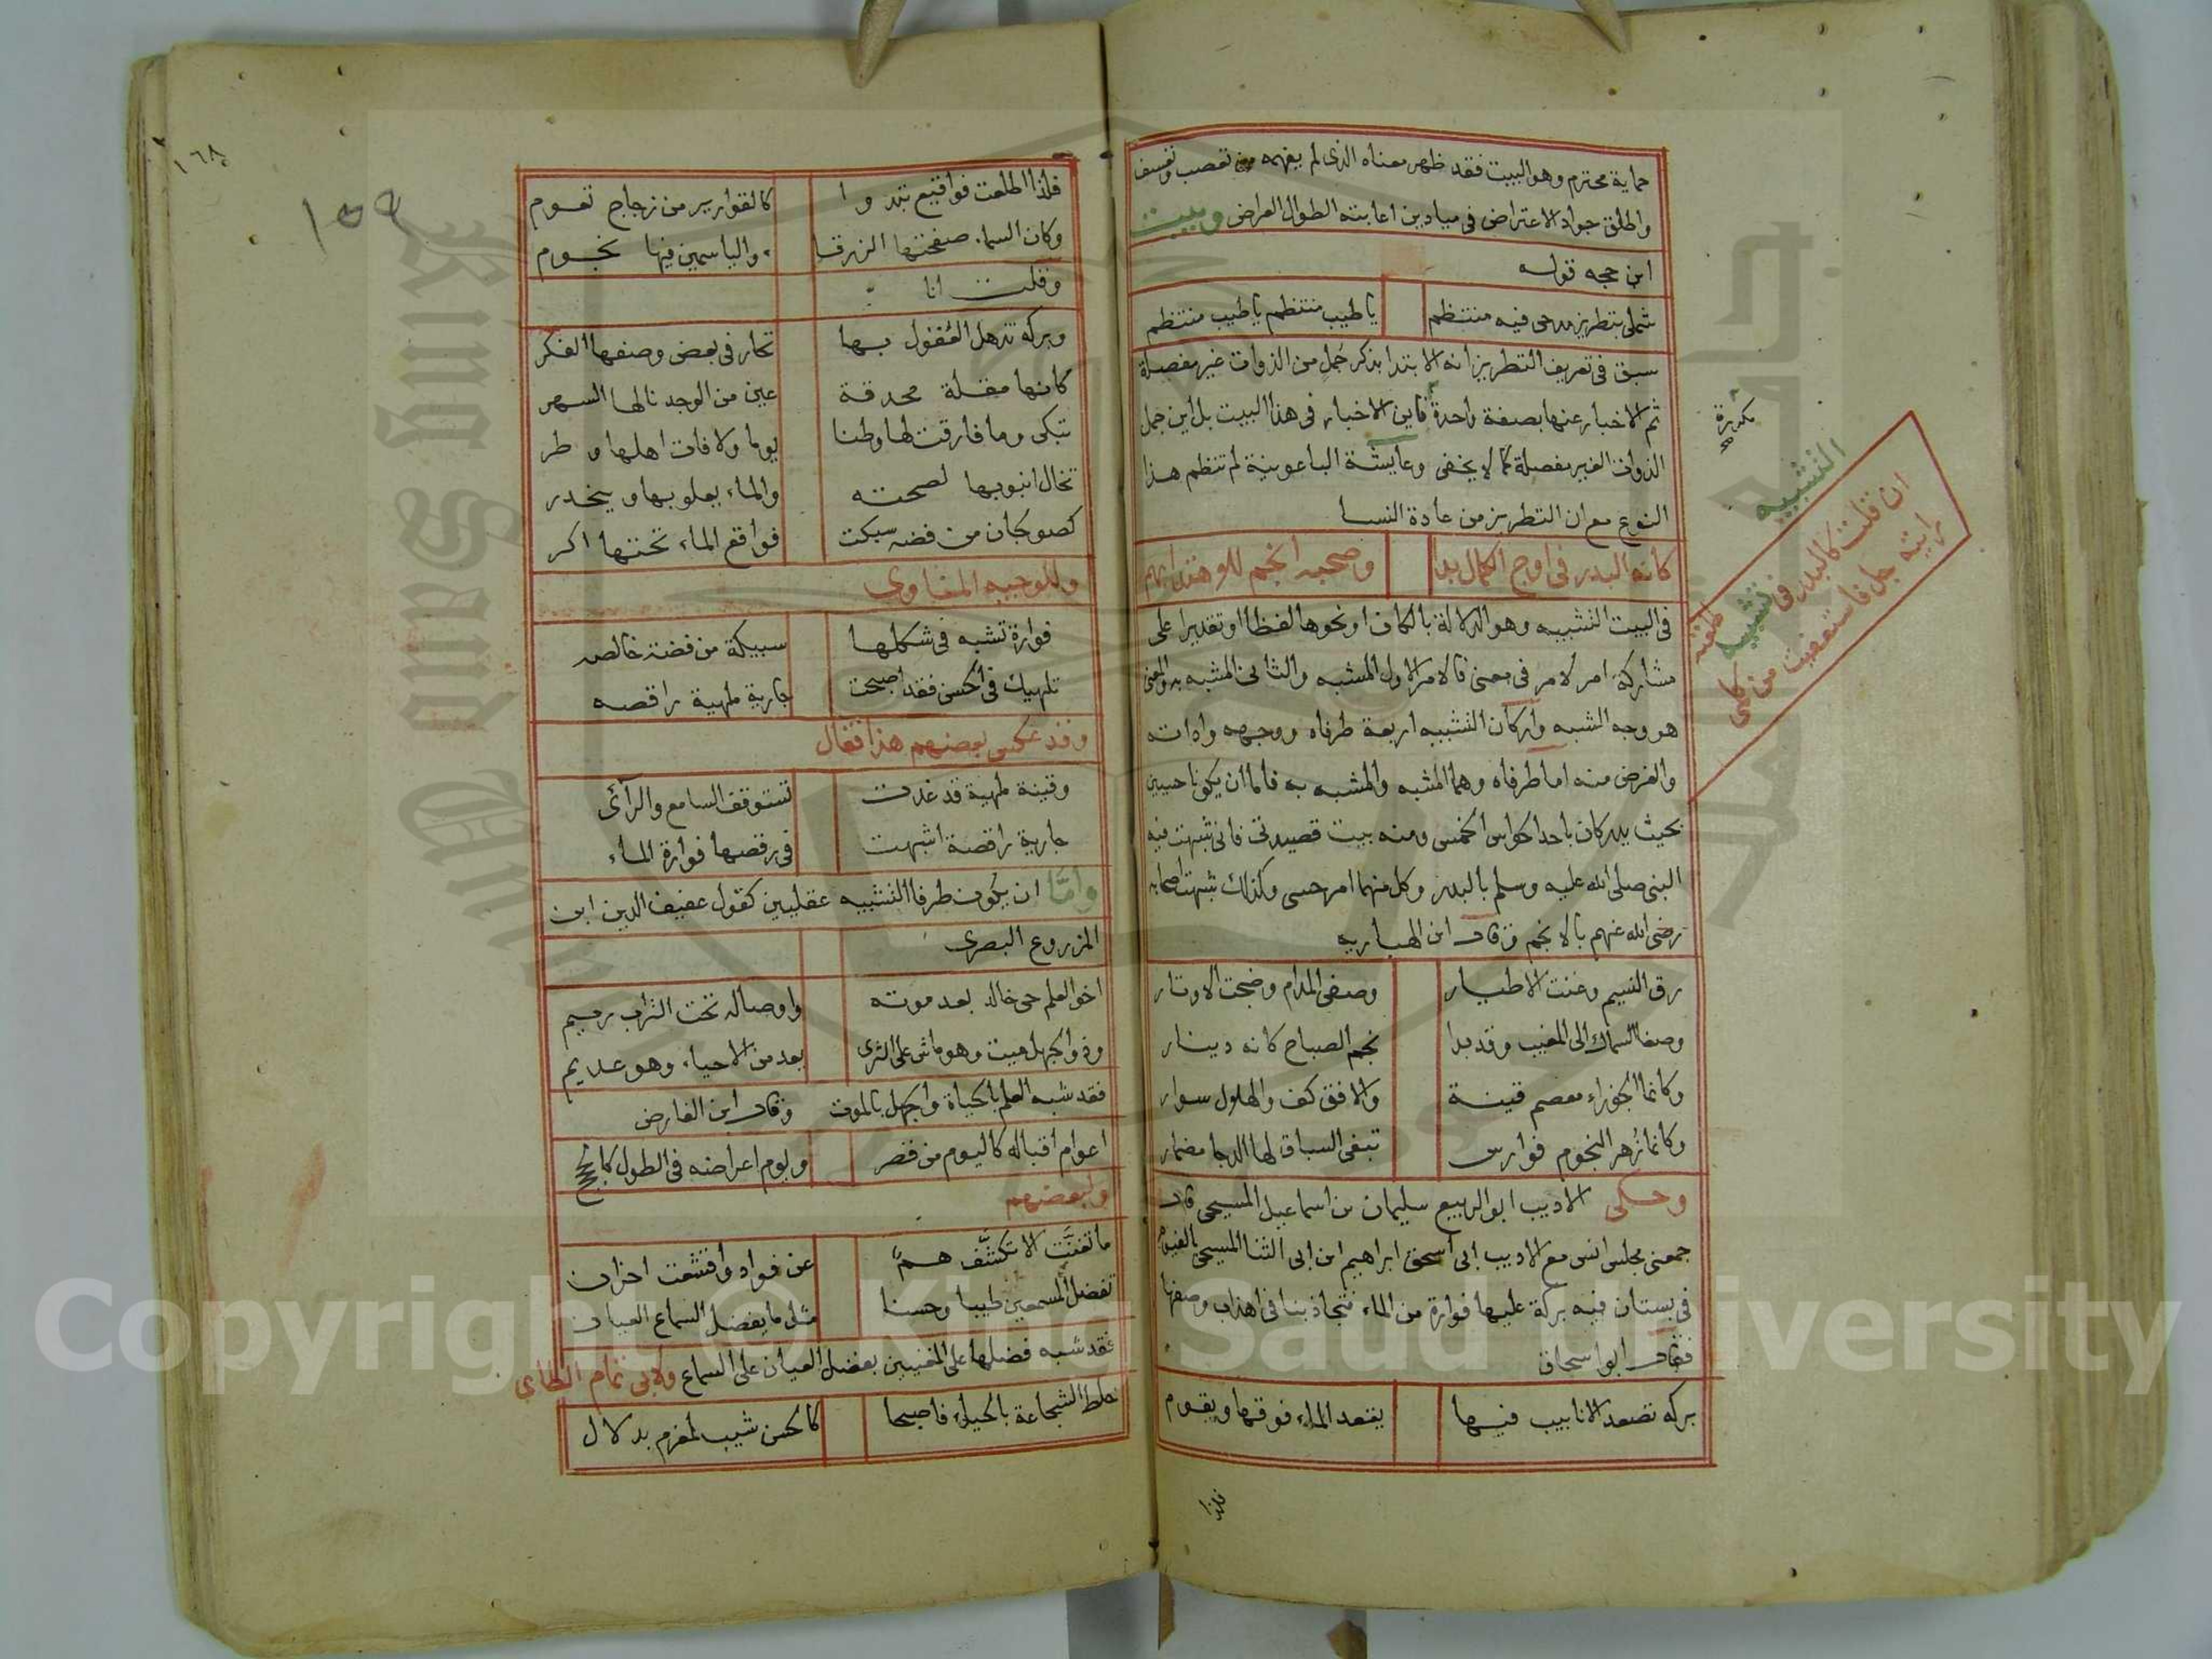 حماية محترم وهو البيت فقد ظهر معناه الذى لم يفهمه من تعصب وتعسف
واطلق جواد الاعتراض فى ميادين اعابته الطوال العراض وبيت
ابن حجه قوله
شملى بتطريز مدحى فيه منتظم يا طيب منتظم يا طيب منتظم
سبق فى تعريف التطريز انه الابتدا بذكر جمل من الذوات غير مفصلة
ثم الاخبار عنها بصفة واحدة فاين الاخبار فى هذا البيت بل اين جمل
الذوات الغير مفصلة كما لا يخفى وعايشة الباعونية لم تنظم هذا
النوع مع ان التطريز من عادة النسا
كانه البدر فى اوج الكمال بدا وصحبه انجم
فى البيت التشبيه وهو الدلالة بالكاف او نحوها لفظا او تقديرا على
مشاركة امر لامر فى معنى فالامر الاول المشبه والثانى المشبه به والمعنى
هو وجه الشبه واركان التشبيه اربعة طرفاه ووجهه واداته
والغرض منه اما طرفاه وهما المشبه والمشبه به فاما ان يكونا حسيين
بحيث يدركان باحد الحواس الخمس ومنه بيت قصيدتى فانى شبهت فيه
النبى صلى الله عليه وسلم بالبدر وكل منهما امر حسى وكذلك شبهت اصحابه
رضى الله عنهم بالانجم وقال ابن الهباريه
رق النسيم وغنت الاطيار وصفى المدام وضجت الاوتار
وصغا السماك الى المغيب وقد بدا نجم الصباح كانه دينار
وكانما الجوزاء معصم قينة والافق كف والهلال سوار
وكانما زهر النجوم فوارس تبغى السباق لها الدجا مضمار
وحكى الاديب ابو الربيع سليمان بن اسماعيل المسيحى قال
جمعنى مجلس انس مع الاديب ابى اسحق ابراهيم ابن ابى الثنا المسيحى بالفيوم
فى بستان فيه بركة عليها فوارة من الماء فتجاذبنا فى اهداب وصفها
فقال ابو اسحاق
بركه تصعد الانابيب فيها يقعد الماء فوقها ويقوم
فلذا
التشبيه
ان قلت كالبدر فى تشبيه طلعته
رايته جل فاستعفيت من كلمى
١٦٨
١٥٩
فلذا اطلعت فواقيع تبدوا كالقوارير من زجاج تعوم
وكان السماء صفحتها الزرقا والياسمين فيها نجوم
وقلت انا
وبركه تذهل العقول بها تحار فى بعض وصفها الفكر
كانها مقلة محدقة عين من الوجد نالها السهر
تبكى وما فارقت لها وطنا يوما ولا فات اهلها وطر
تخال انبوبها لصحته والماء يعلو بها وينحدر
كصولجان من فضه سبكت فواقع الماء تحتها اكر
وللوجيه المناوى
فوارة تشبه فى شكلها سبيكة من فضة خالصه
تلهيك فى الحسن فقد اصبحت جارية ملهية راقصه
وقد عكس بعضهم هذا فقال
وقينة ملهية قد غدت تستوقف السامع والرآئى
جارية راقصة اشبهت فى رقصها فوارة الماء
وأمّا ان يكون طرفا التشبيه عقليين كقول عفيف الدين ابن
المزروع البصرى
اخو العلم حى خالد بعد موته واوصاله تحت التراب رميم
وذو الجهل ميت وهو ماش على الثرى يعد من الاحياء وهو عديم
فقد شبه العلم بالحياة والجهل بالموت وقال ابن الفارض
اعوام اقباله كاليوم من قصر ويوم اعراضه فى الطول كالحجج
ولبعضهم
ما تغنت الا تكشّف همّ عن فواد واقشعت احزان
تفضل المسمعين طيبا وحسنا مثل ما يفضل السماع العيان
فقد شبه فضلها على المغنيين بفضل العيان على السماع ولابى تمام الطاى
خلط الشجاعة بالحياء فاصبحا كالحسن شيب لمغرم بدلال
Copyright © King Saud University
King Saud University